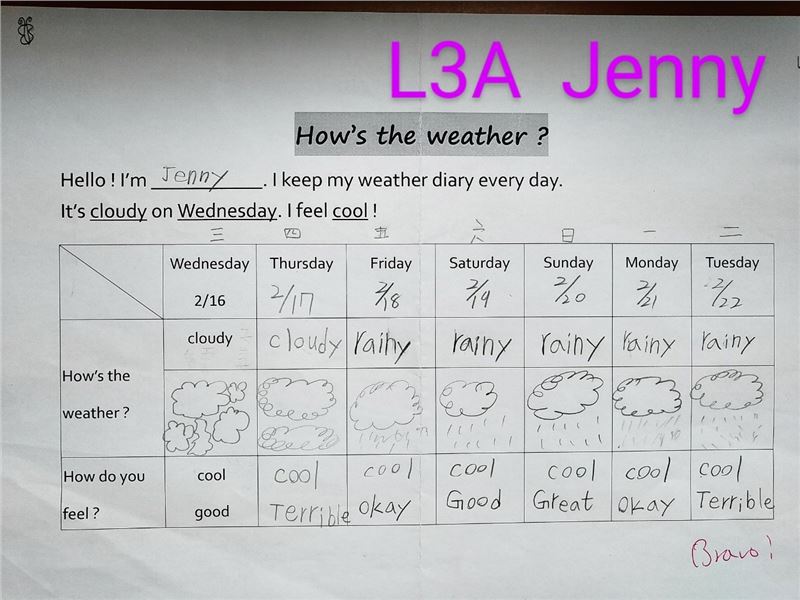 L3A Jenny
How's the weather ?
Hello ! I'm Jenny. I keep my weather diary every day.
It's cloudy on Wednesday. I feel cool !
三 四 五 六 日 一 二
Wednesday Thursday Friday Saturday Sunday Monday Tuesday
2/16 2/17 2/18 2/19 2/20 2/21 2/22
cloudy cloudy rainy rainy rainy rainy rainy
How's the
weather ?
How do you cool cool cool cool cool cool cool
feel ? good Terrible okay Good Great okay Terrible
Bravo!